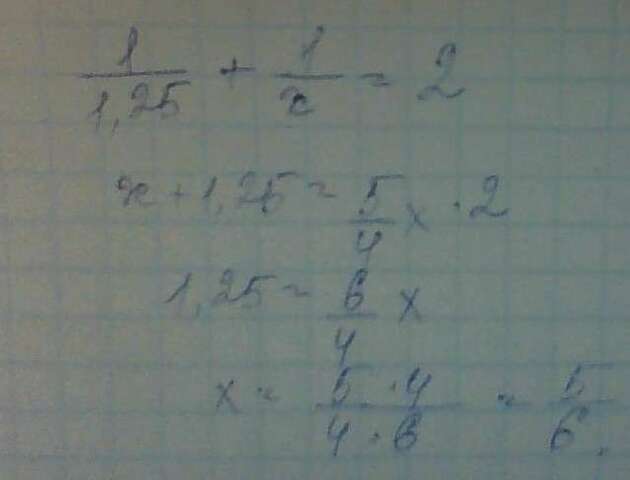 1/1,25 + 1/x = 2
x + 1,25 = 5/4 x · 2
1,25 = 6/4 x
x = 5·4/4·6 = 5/6.